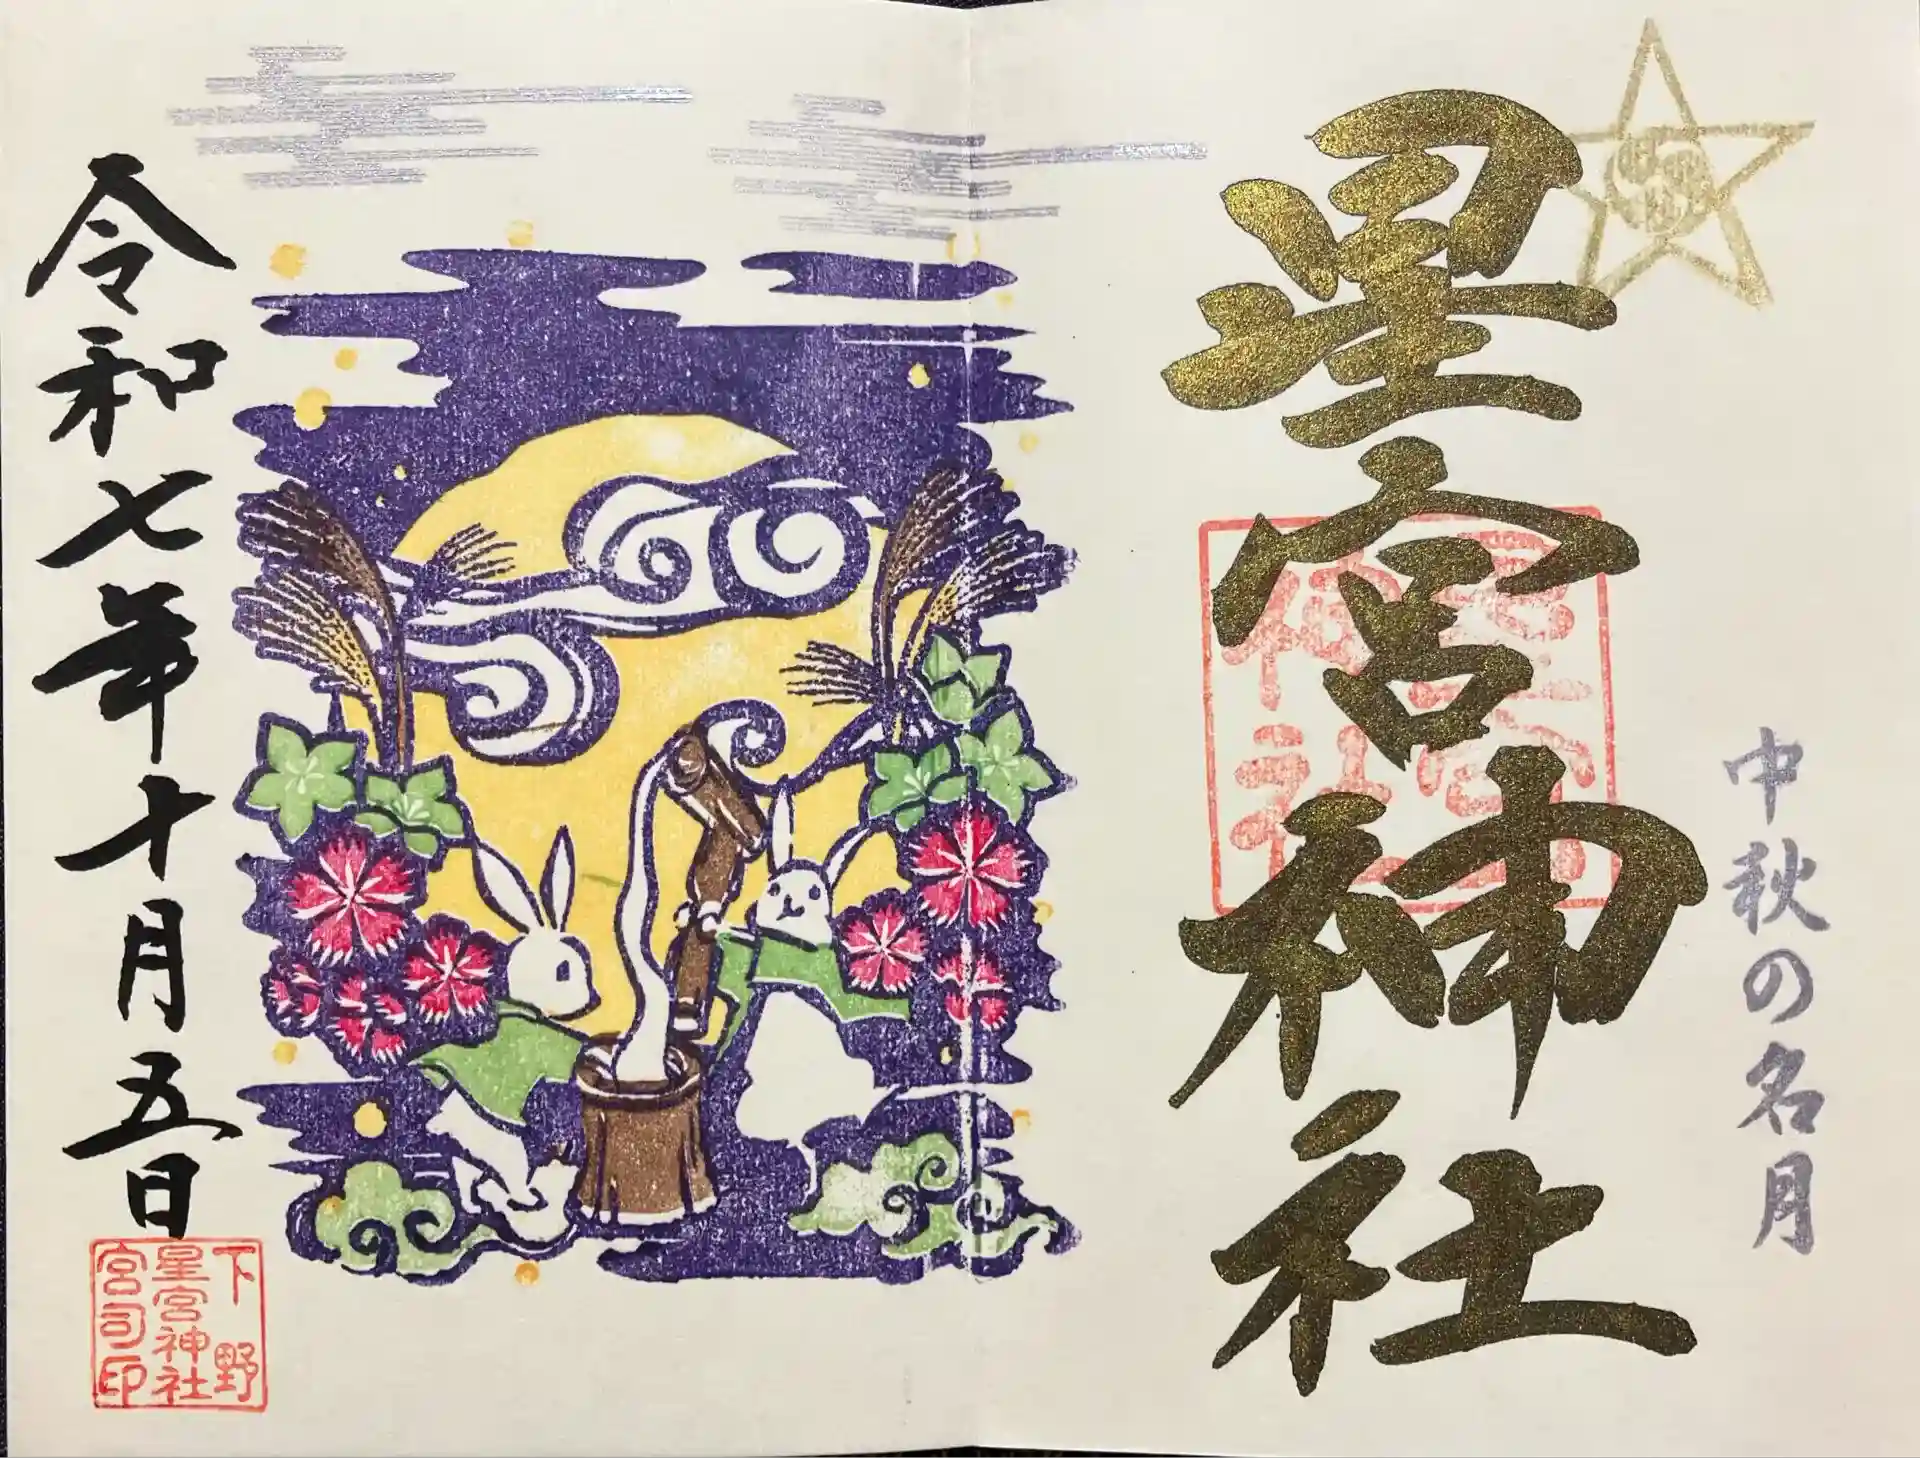 中秋の名月
星宮神社
星宮
神社
令和七年十月五日
下野
星宮神社
宮司印